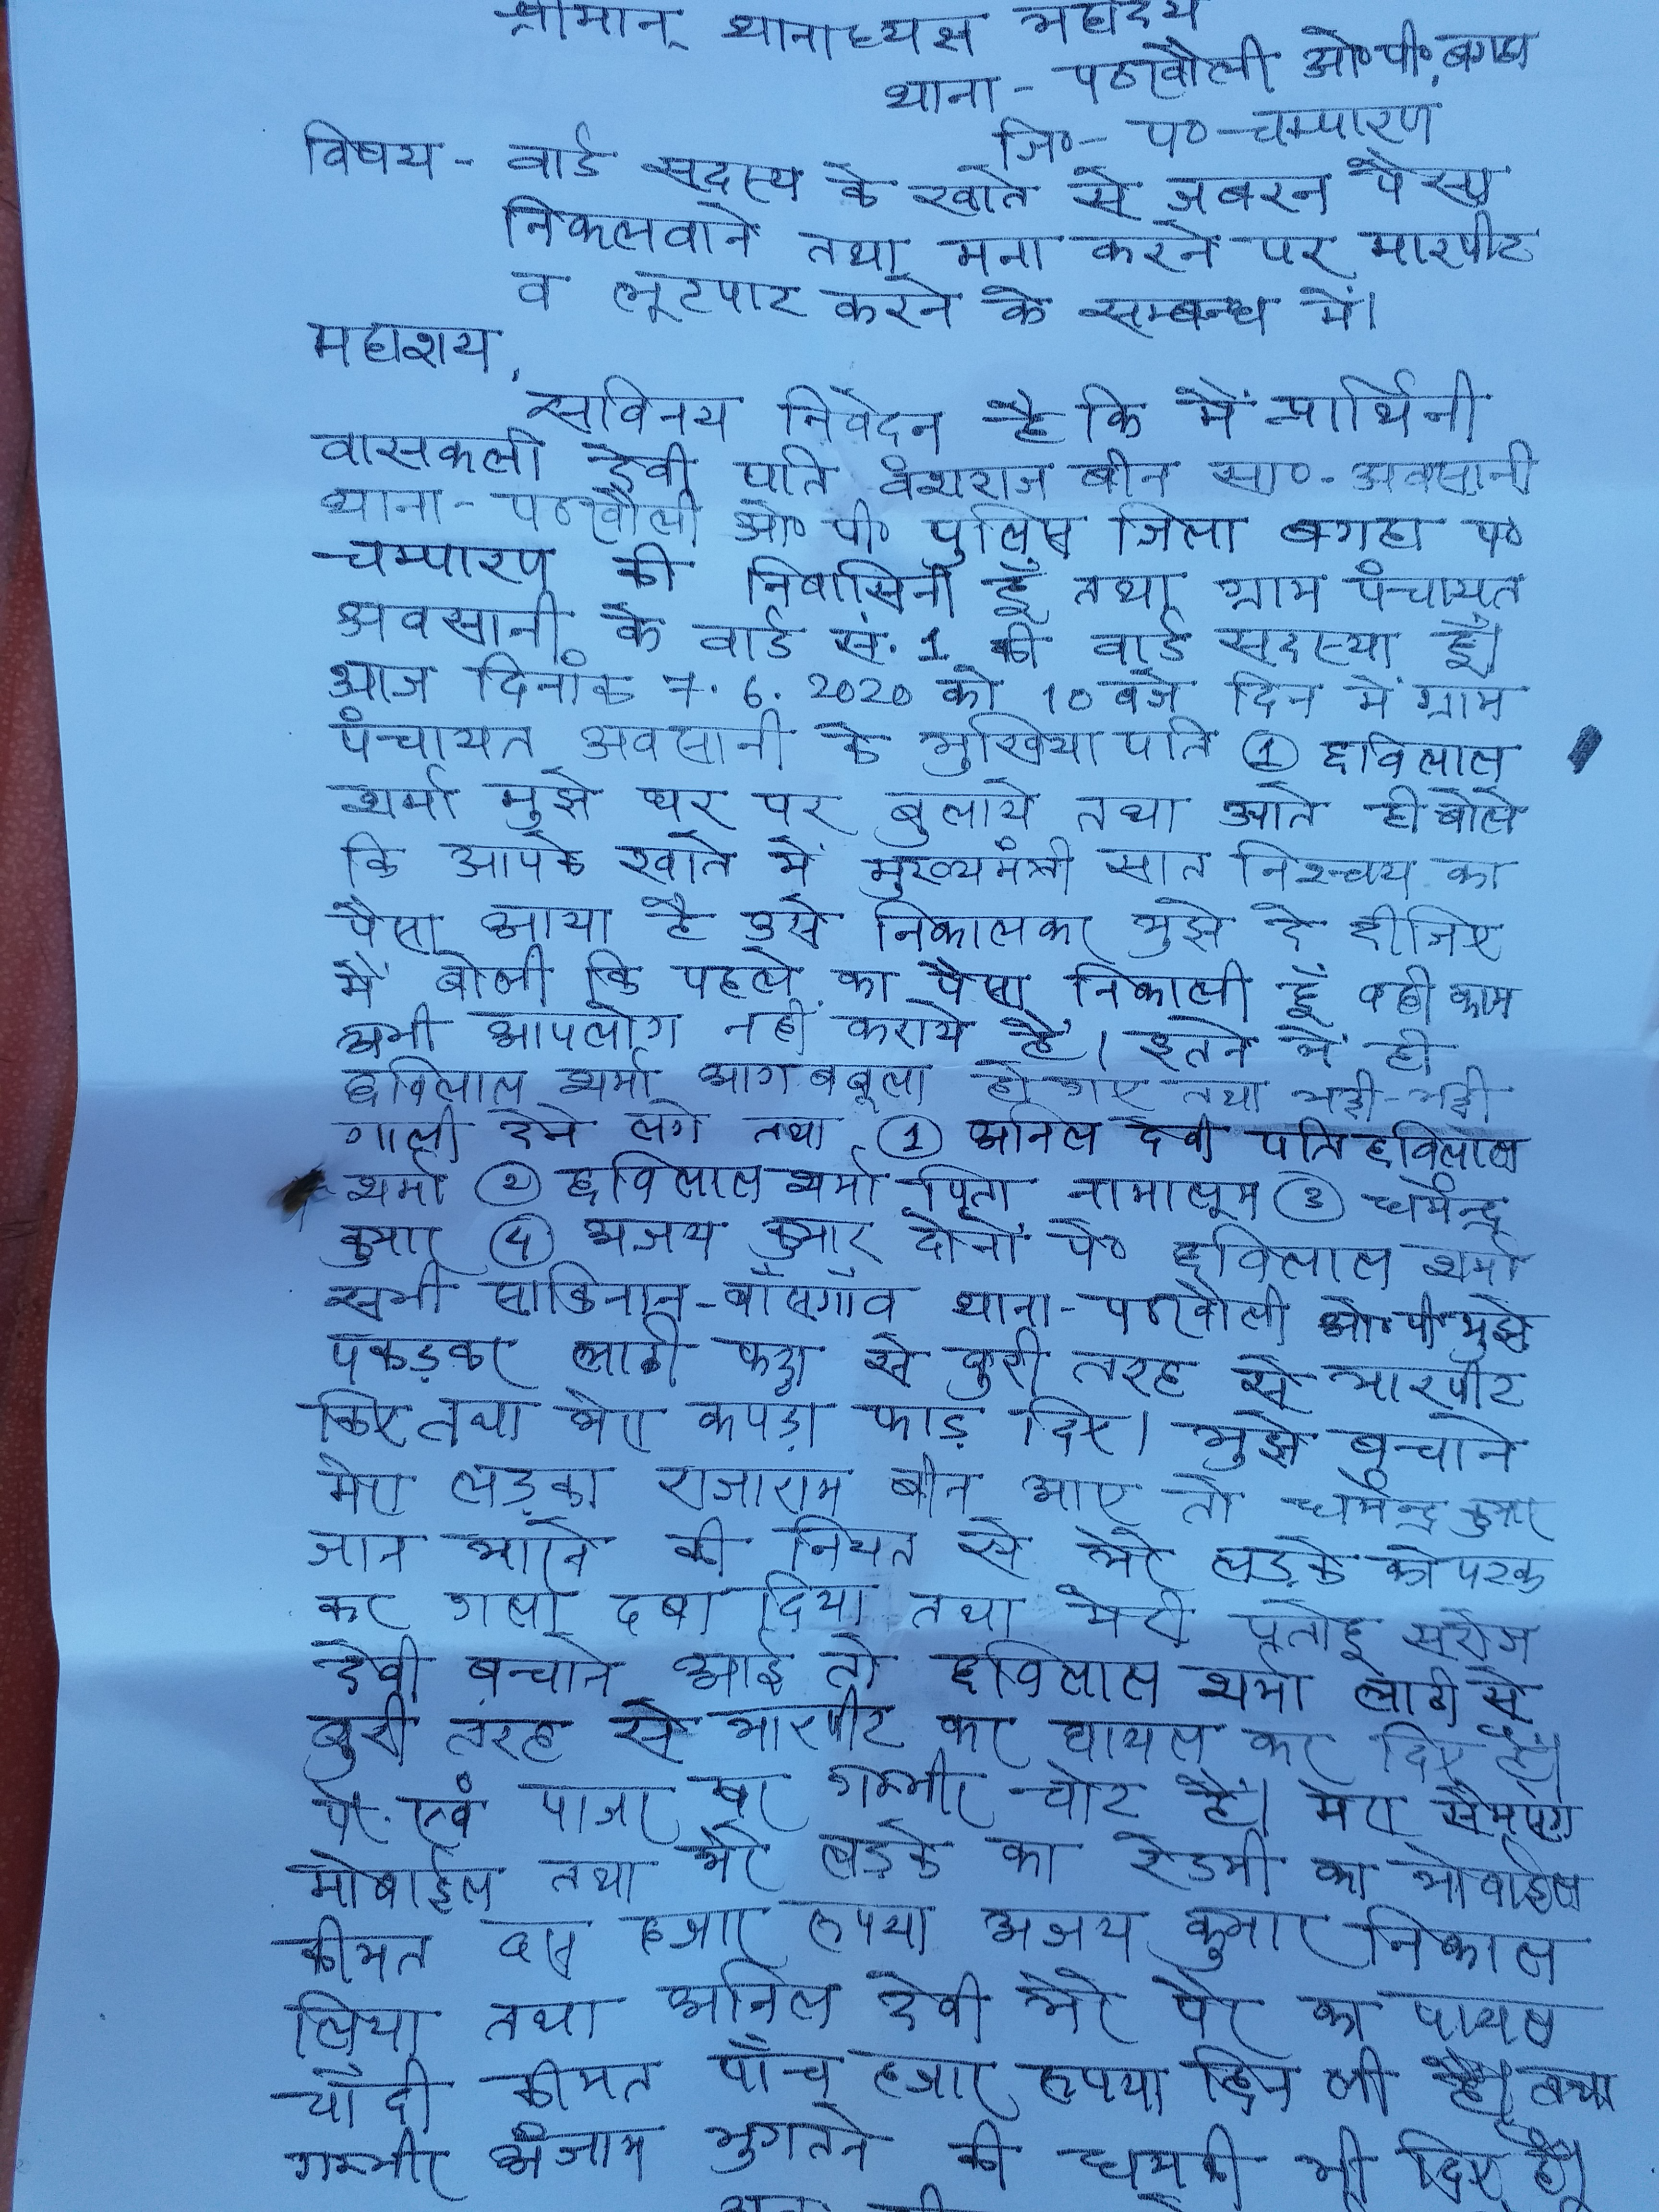 श्रीमान् थानाध्यक्ष महोदय
थाना - पठखौली ओ०पी०, बगहा
जि०- प० चम्पारण
विषय - वार्ड सदस्य के खाते से जबरन पैसा
निकलवाने तथा मना करने पर मारपीट
व लूटपाट करने के सम्बन्ध में।
महाशय,
सविनय निवेदन है कि मैं प्रार्थिनी
वासकली देवी पति वंशराज बीन सा०- अवसानी
थाना- पठखौली ओ० पी० पुलिस जिला बगहा प०
चम्पारण की निवासिनी हूँ तथा ग्राम पंचायत
अवसानी के वार्ड सं. 1 की वार्ड सदस्या हूँ।
आज दिनांक 7. 6. 2020 को 10 बजे दिन में ग्राम
पंचायत अवसानी के मुखिया पति ① छविलाल
शर्मा मुझे घर पर बुलाये तथा आते ही बोले
कि आपके खाते में मुख्यमंत्री सात निश्चय का
पैसा आया है उसे निकालकर मुझे दे दीजिए
मैं बोली कि पहले का पैसा निकाली हूँ वही काम
अभी आपलोग नहीं कराये हैं। इतने में ही
छविलाल शर्मा आग बबूला हो गए तथा भद्दी-भद्दी
गाली देने लगे तथा ① अनिल देवी पति छविलाल
शर्मा ② छविलाल शर्मा पिता नामालूम ③ धर्मेन्द्र
कुमार ④ अजय कुमार दोनों पे० छविलाल शर्मा
सभी साकिनान-बाँसगाँव थाना-पठखौली ओ०पी० मुझे
पकड़कर लाठी फट्ठा से बुरी तरह से मारपीट
किए तथा मेरा कपड़ा फाड़ दिए। मुझे बचाने
मेरा लड़का राजाराम बीन आए तो धर्मेन्द्र कुमार
जान मारने की नियत से मेरे लड़के को पटक
कर गला दबा दिया तथा मेरी पतोहू सरोज
देवी बचाने आई तो छविलाल शर्मा लाठी से
बुरी तरह से मारपीट कर घायल कर दिए हैं।
पैर एवं पाजा पर गम्भीर चोट है। मेरा सैमसंग
मोबाईल तथा मेरे लड़के का रेडमी का मोबाईल
कीमत दस हजार रूपया अजय कुमार निकाल
लिया तथा अनिल देवी मेरे पैर का पायल
चाँदी कीमत पाँच हजार रूपया छिन ली है। तथा
गम्भीर अंजाम भुगतने की धमकी भी दिए हैं।